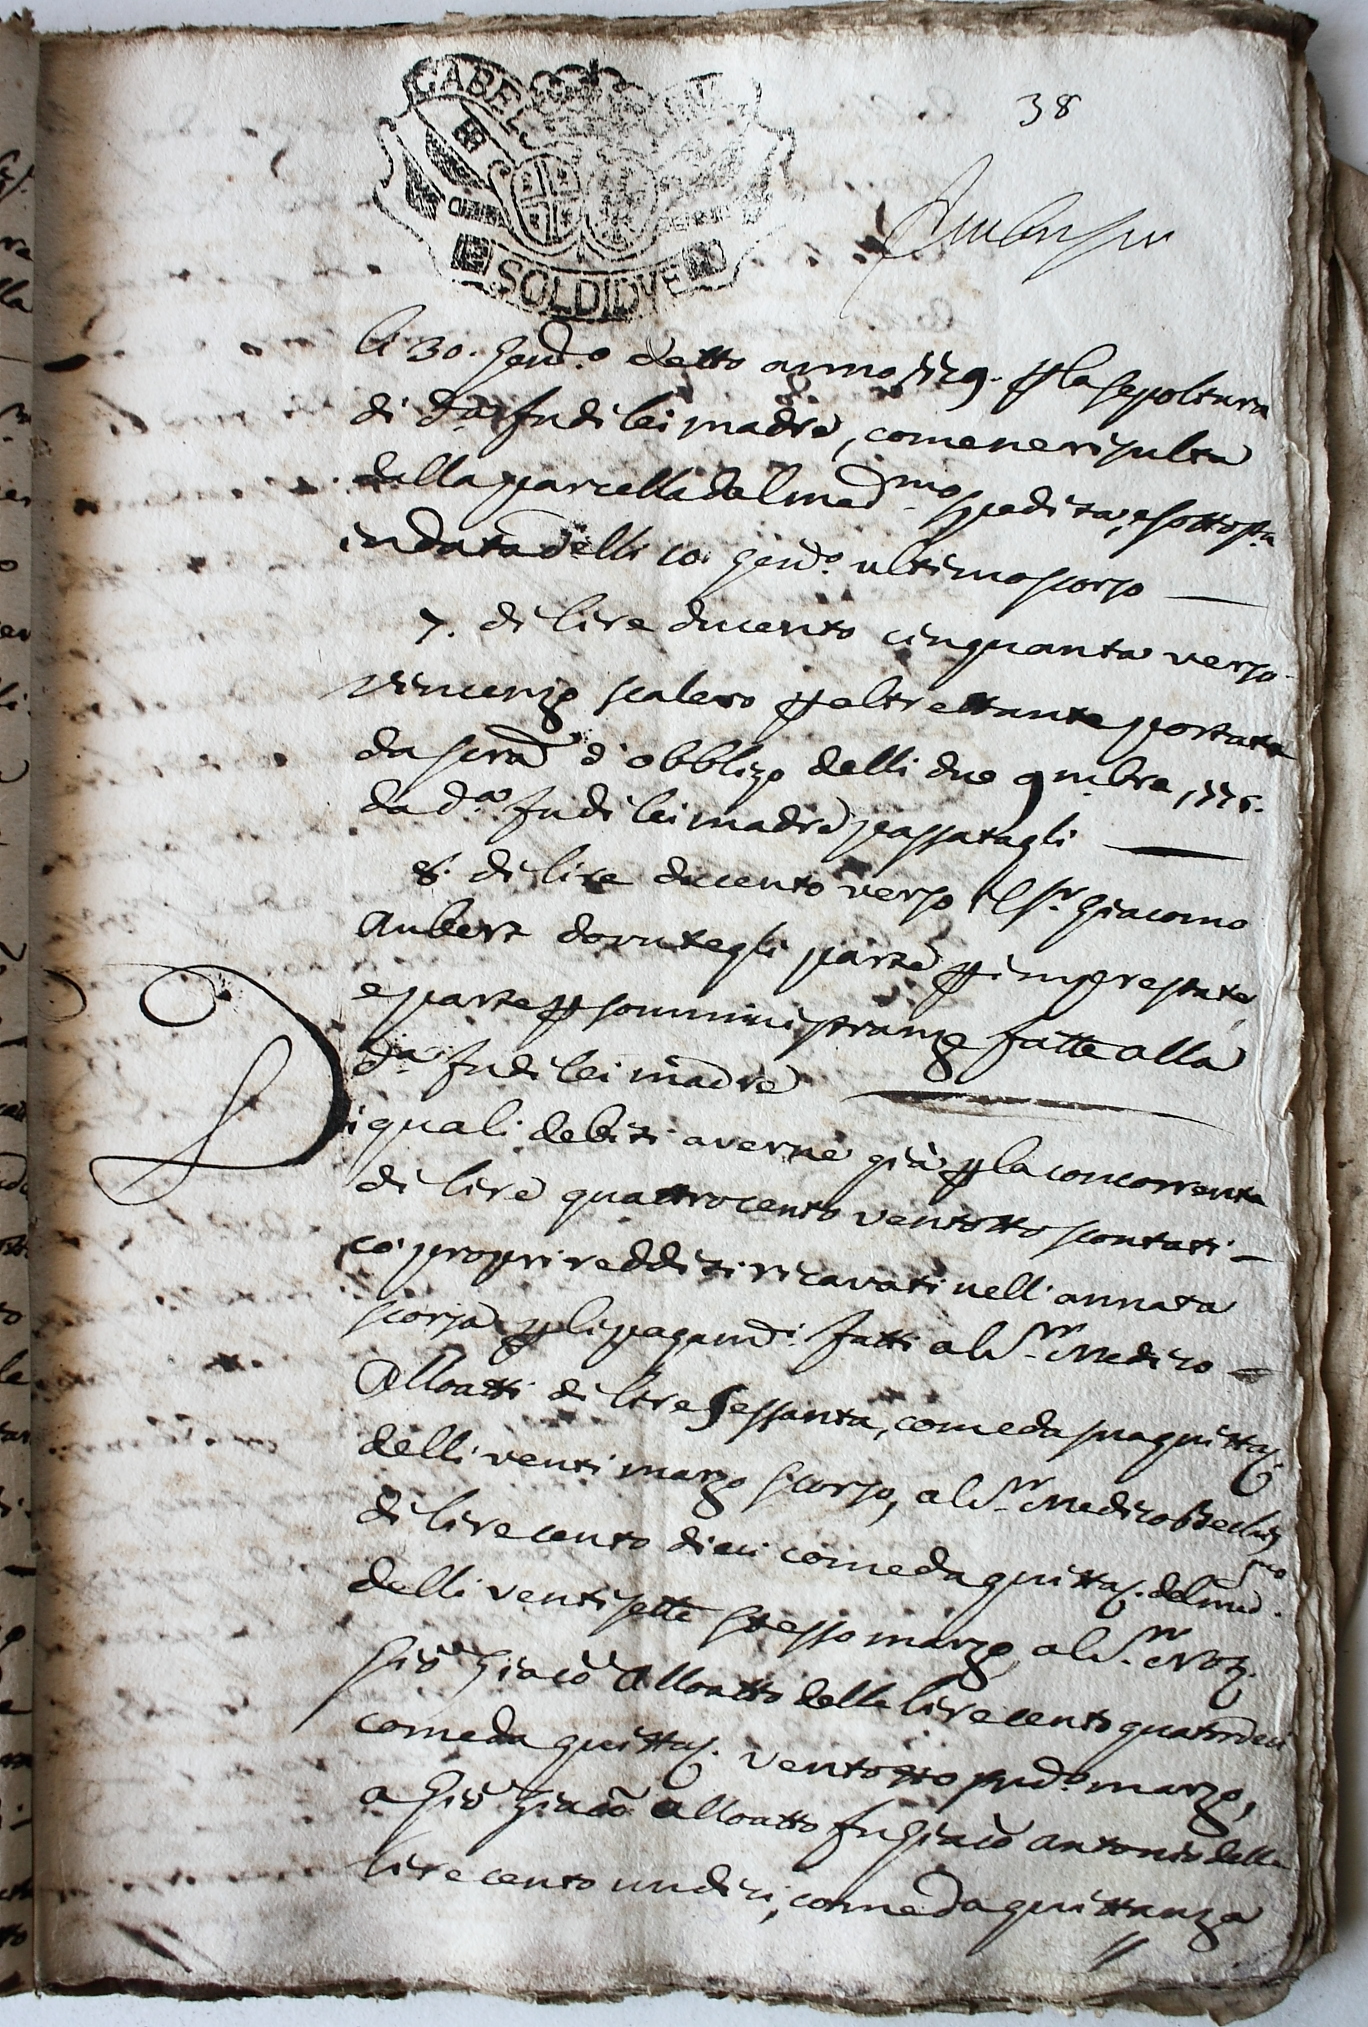 GABEL
38
SOLDI DVE
li 30. Genº detto anno 1779. p la sepoltura
di dª fu di lei madre, come ne risulta
dalla parcella del medmo spedita, e sottostª
in data delli 10. Genº ultimo scorso
7. di lire ducento cinquanta verso
Vincenzo Scalero p eltrettante portate
da scrª d'obbligo delli due 9mbre 1776.
da dª fu di lei madre passatagli
8. di lire ducento verso il Sr. Giacomo
Aubert dovutegli parte p imprestate,
e parte p somministranze fatte alla
dª fu di lei madre
i quali debiti averne già p la concorrente
di lire quattrocento ventotto scontati
co' propri redditi ricavati nell'annata
scorsa p li pagamti fatti al Sr. Medico
Alloatti di lire sessanta, come da sua quittaz.
delli venti marzo scorso, al Sr. Medico
di lire cento dieci come da quittaz. del medmo
delli venti sette stesso marzo, al Sr. Not.
Gio Giacô Alloatto delle lire cento quatordeci
come da quittaz. ventotto sudº marzo,
a Gio Giacô Alloatto fu Giacô Antonio delle
lire cento undici, come da quittanza